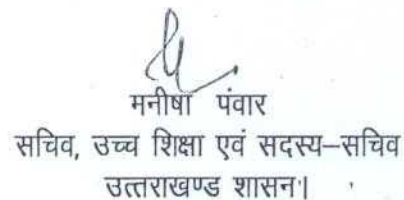 मनीषा पंवार
सचिव, उच्च शिक्षा एवं सदस्य–सचिव
उत्तराखण्ड शासन।